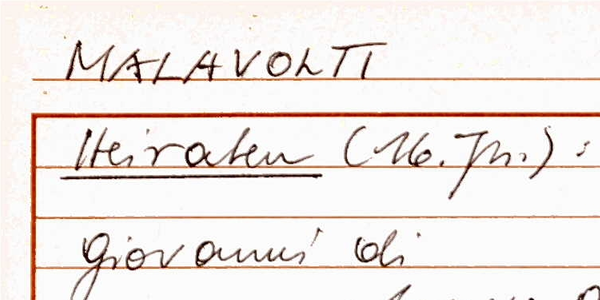 MALAVOLTI
Heiraten (16. Jh.):
Giovanni di